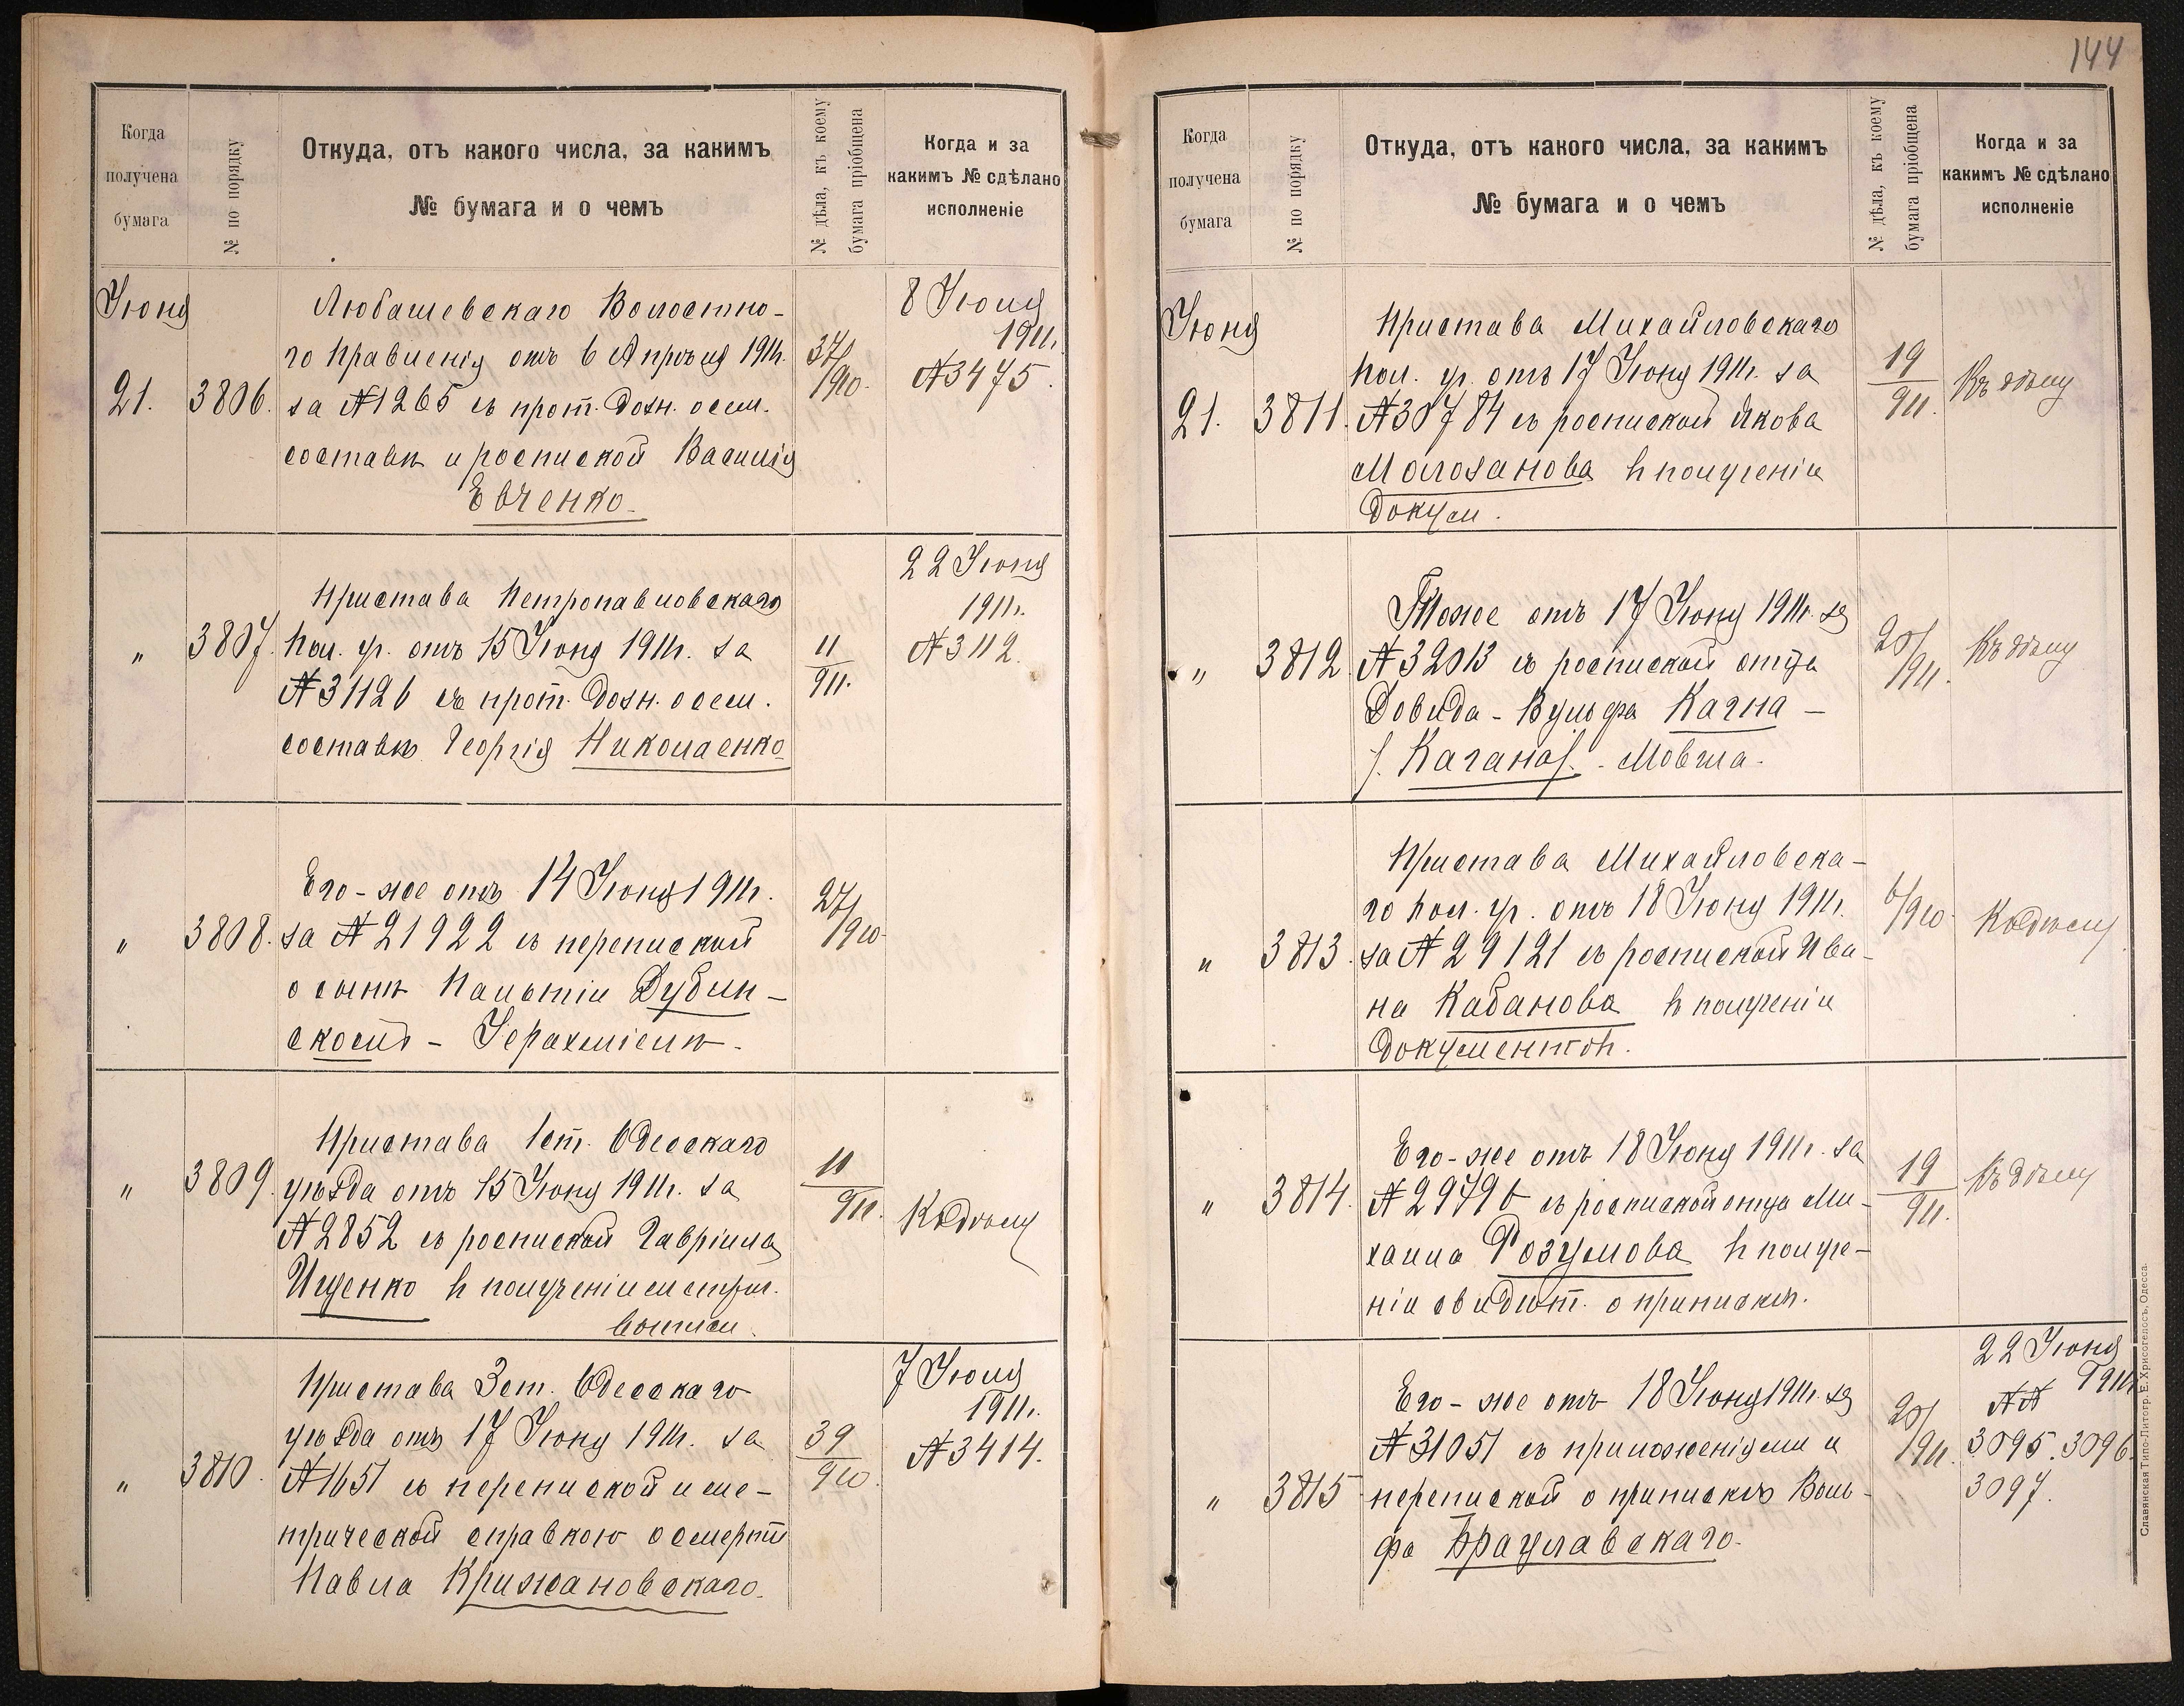 Когда
получена
бумага
№ по порядку
Откуда, отъ какого числа, за какимъ
№ бумага и о чемъ
№ дѣла, къ коему
бумага пріобщена
Когда и за
какимъ № сдѣлано
исполненіе
Іюня
21.
3806.
Любашевскаго Волостно-
го Правленія отъ 6 Апрѣля 1911г.
за №1265 съ прот. дозн. о сем.
составѣ и роспиской Василія
Евченко.
37/
1910.
8 Іюля
1911г.
№3475.
"
3807.
Пристава Петропавловскаго
пол. уч. отъ 15 Іюня 1911г. за
№31126 съ прот. дозн. о сем.
составѣ Георгія Николаенко
11
911.
22 Іюня
1911г.
№3112.
"
3808.
Его-же отъ 14 Іюня 1911г.
за №21922 съ перепиской
о сынѣ Пальтіи Дубин-
скомъ - Іерахміелѣ.
27/
1910.
"
3809.
Пристава 1 ст. Одесскаго
уѣзда отъ 15 Іюня 1911г. за
№2852 съ роспиской Гавріила
Ищенко в полученіи метрич.
выписи.
10
911.
Къ дѣлу
"
3810.
Пристава 3 ст. Одесскаго
уѣзда отъ 17 Іюня 1911г. за
№1651 съ перепиской и ме-
трической справкою о смерти
Павла Крижановскаго.
39
910.
7 Іюля
1911г.
№3414.
144
Когда
получена
бумага
№ по порядку
Откуда, отъ какого числа, за какимъ
№ бумага и о чемъ
№ дѣла, къ коему
бумага пріобщена
Когда и за
какимъ № сдѣлано
исполненіе
Іюня
21.
3811.
Пристава Михайловскаго
пол. уч. отъ 17 Іюня 1911г. за
№30784 съ роспиской Якова
Молозанова в полученіи
докум.
19
911.
Къ дѣлу
"
3812
Тоже отъ 17 Іюня 1911г. за
№32013 съ роспиской отца
Довида-Вульфа Кагна -
/. Кагана/. - Мовша.
20/
1911.
Къ дѣлу
"
3813.
Пристава Михайловска-
го пол. уч. отъ 18 Іюня 1911г.
за №29121 съ роспиской Ива-
на Кабанова в полученіи
документов.
6/
1910.
Къ дѣлу
"
3814.
Его-же отъ 18 Іюня 1911г. за
съ роспиской отца Ми-
хаила Розумова в получе-
ніи свидѣт. о припискѣ.
19
911.
Къ дѣлу
"
3815
Его-же отъ 18 Іюня 1911г. за
№31051 съ приложеніями и
перепиской о припискѣ Воль-
фа Брацлавскаго.
20/
1911.
22 Іюня
1911г.
№№
3095. 3096.
3097.
Славянская Типо-Литогр. Е. Хрисогелосъ, Одесса.